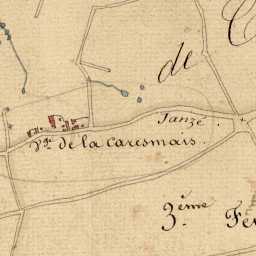 de C
Janzé.
Vge. de la Caresmais.
3.ème Fe